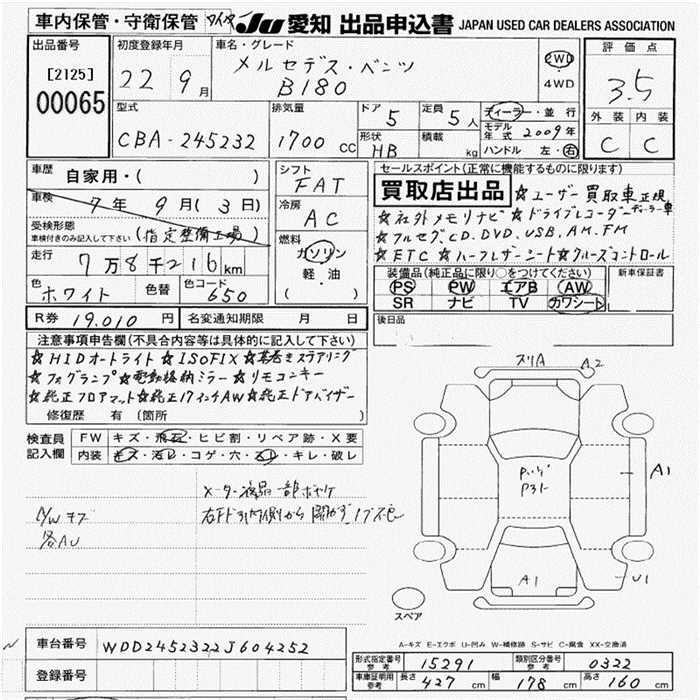 車内保管・守衛保管 タイヤ JU 愛知 出品申込書 JAPAN USED CAR DEALERS ASSOCIATION
出品番号 初度登録年月 車名・グレード 評価点
[2125] 22 9月 メルセデス・ベンツ 2WD
00065 B180 4WD 3.5
型式 排気量 ドア 5 定員 5人 ディーラー・並行 外装 内装
CBA-245232 1700cc 形状 HB 積載 kg モデル年式 2009年 C C
ハンドル 左・右
車歴 自家用・( ) シフト FAT セールスポイント(正常に機能するものに限ります)
車検 7年 9月(3日) 冷房 AC 買取店出品 ☆ユーザー買取車正規ディーラー車
☆社外メモリナビ ☆ドライブレコーダー
受検形態 車検付きのみ記入して下さい (指定整備工場) 燃料 ガソリン ☆フルセグ,CD,DVD,USB,AM,FM
走行 7万8千216km 軽・油 ☆ETC ☆ハーフレザーシート☆クルーズコントロール
色 ホワイト 色替 色コード 650 ( ) 装備品(純正品に限り○をつけてください) 新車保証書
PS PW エアB AW
SR ナビ TV カワシート
R券 19,010円 名変通知期限 月 日 後日品
注意事項申告欄(不具合内容等は具体的に記入して下さい)
☆HIDオートライト ☆ISOFIX ☆革巻きステアリング
☆フォグランプ☆電動格納ミラー☆リモコンキー
☆純正フロアマット☆純正17インチAW☆純正ドアバイザー
修復歴 有 (箇所 )
検査員記入欄 FW キズ・飛石・ヒビ割・リペア跡・X要
内装 キズ・汚レ・コゲ・穴・スレ・キレ・破レ
メーター液晶一部ボヤケ
A/W キズ
各AU
スリA A2
A1
A1
U1
スペア
A-キズ E-エクボ U-凹み W-補修跡 S-サビ C-腐食 XX-交換済
車台番号 WDD2452322J604252
登録番号
形式指定番号 参考 15291 類別区分番号 参考 0322
車庫証明用 参考 長さ 427cm 幅 178cm 高さ 160cm